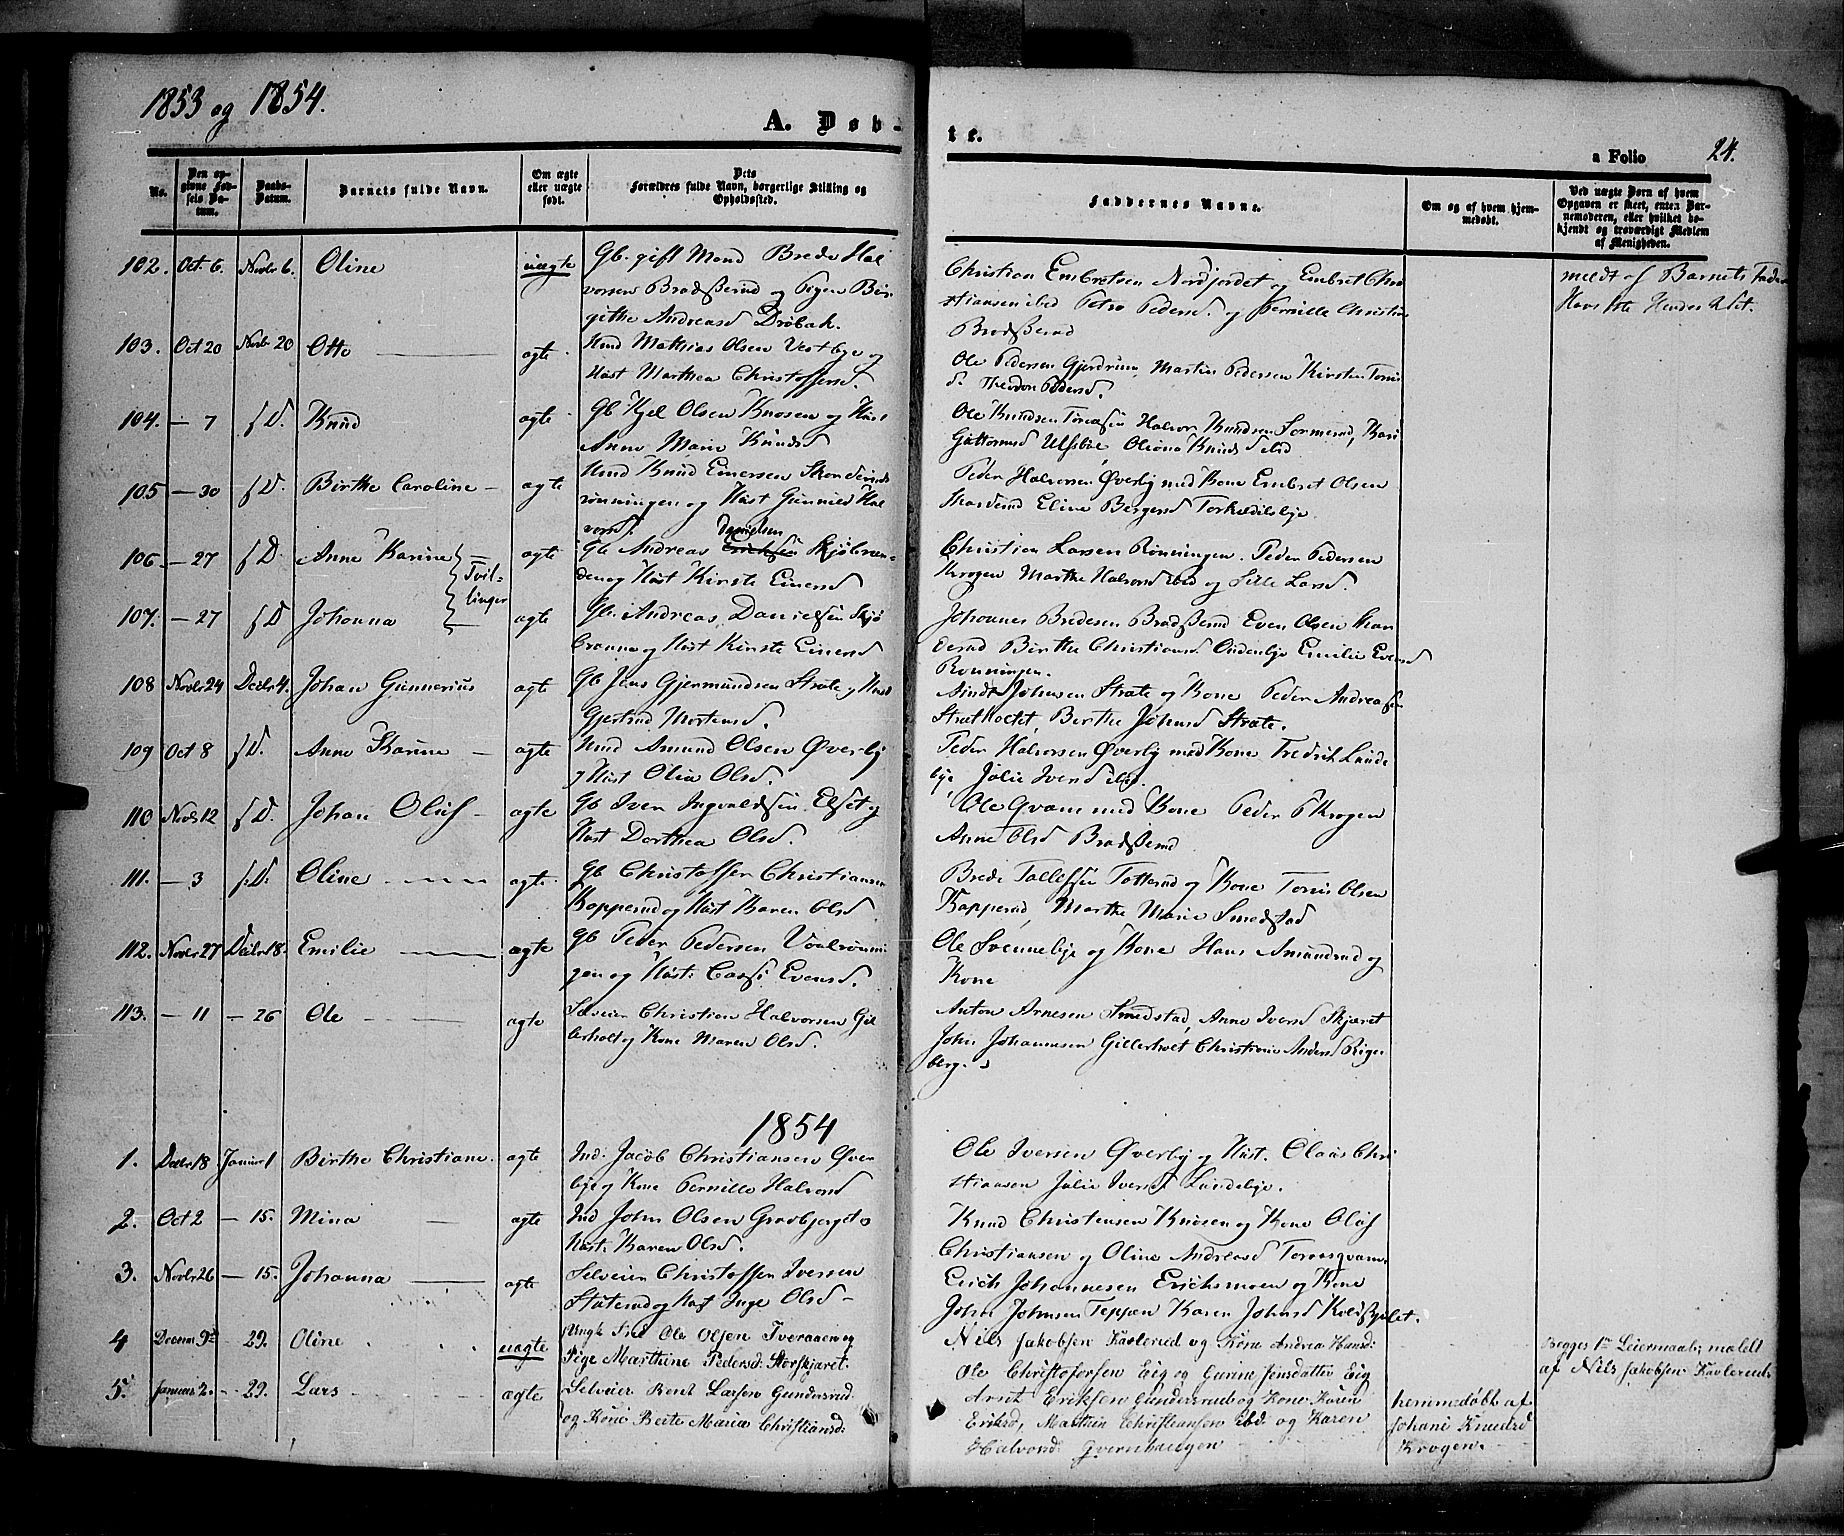 1853 og 1854.
A. Døb-
te.
a Folio 24.
No.
Den opgivne Fødsels Datum.
Daabs-Datum.
Barnets fulde Navn.
Om ægte eller uægte født.
Dets Forældres fulde Navn, borgerlige Stilling og Opholdssted.
Faddernes Navne.
Om og af hvem hjemmedøbt.
Ved uægte Børn af hvem Opgaven er skeet, enten Barnemoderen, eller hvilket bekjendt og troværdigt Medlem af Menigheden.
102. Oct. 6. Novbr 6. Oline uægte Gb. gift Mand Brede Hal
vorsen Bradsserud og Pigen Bir
githe Andreasd Drøbak.
Christian Embretsen Nordjordet og Embret Chri
stiansen ibd Petra Pedersd. og Pernille Christia
Bradsserud
meldt af Barnets Fader
Hans 1ste Hendes
103. Oct 20 Novbr 20 Otto ægte Huusmd Mathias Olsen Vestbye og
Hust Marthea Christoffersd.
Ole Pedersen Gjerdrum, Martin Pedersen Kirsten Tonis
d. Theodor Pedersd.
104. - 7 s.D. Knud ægte Gb Kjel Olsen Knosen og Hust
Anne Marie Knudsd
Ole Knudsen Halvor Knudsen Sormerud, Kari
Guttormsd Oliana Knudsd ibd
105 - 30 s.D. Birthe Caroline - ægte Knud Einersen
rønningen og Hust Gunnild Hal
vorsd.
Peder Halvorsen Øverby med Kone Embret Olsen
Haverud Eline Bergersd Torkildsbye.
106 - 27 s.D. Anne Karine Tvil- ægte Gb Andreas Danielsen Skjøbræn
den og Hust Kirste Einersd
Christian Larsen Rønningen. Peder Pedersen
Krogen Marthe Halvorsd ibd og Sille Larsd.
107. - 27 s.D Johanna linger ægte Gb. Andreas Danielsen Skjø
brænna og Hust Kirste Einersd
Johannes Bredesen Bradsserud Even Olsen Hav
erud Birthe Christiansd Ondenbye Emilie Evensd
Rønningen.
108 Novbr 24 Decbr 4. Johan Gunnerius ægte Gb Jens Gjermundsen Strate og Hust
Gjertrud Mortensd.
Arndt Johnsen Strate og Kone Peder Andreasen
Berthe Johnsd Strate.
109 Oct 8 s.D. Anne Karine - ægte Huusmd Amund Olsen Øverby
og Hust Olia Olsd.
Peder Halvorsen Øverby med Kone Fredrik Lunde
bye, Julie Iversd ibd.
110 Novbr 12 s.D. Johan Oluf - ægte Gb Iver Ingvaldsen Elset og
Hust Dorthea Olsd.
Ole Qvane med Kone Peder P Krogen
Anne Olsd Bradsserud
111. - 3 s.D. Oline ægte Gb Christoffer Christiansen
Kopperud og Hust Karen Olsd
Brede Tollefsen Totterud og Kone Tonis Olsen
Kopperud, Marthe Marie Smedstad
112. Novbr 27 Decbr 18. Emilie ægte Gb Peder Pedersen Vaalrønni
gen og Hust: Cassi Evensd.
Ole Svennebye og Kone Hans Amundrud og
Kone
113. - 11 - 26 Ole ægte Selveier Christian Halvorsen Gil
lerholt og Kone Maren Olsd.
Anton Arnesen Smedstad, Anne Iversd Skjæret
John Johannesen Gillerholt Christiane Andersd Rige
berg.
1854
1. Decbr 18 Januar 1 Birthe Christiane. ægte Ind: Jacob Christiansen Øver
bye og Kone Pernille Halvorsd
Ole Iversen Øverby og Hust. Olaus Chri
stiansen Julie Iversd Lundebye.
2. Oct 2 - 15. Mina ægte Ind John Olsen Gravbjerget og
Hust: Karen Olsd.
Knud Christensen Knosen og Kone Oluf
Christiansen og Oline Andreasd Toraasqvane.
3. Novbr 26 - 15. Johanna ægte Selveier Christoffer Iversen
Staterud og Hust Inge Olsd -
Erich Johannesen Erichsmoen og Kone
Johan Johnsen Teppen Karen Johnsd
4 Decem. 9de - 29. Oline uægte Ungk Ole Olsen Tveraaen og
Pige Marthine Pedersd: Storskjæret.
Nils Jakobsen Kavlerud og Kone Andrea Hansd:
Ole Christofersen Eig og Gurine Jensdatter Eig
Begges 1ste Leiermaal; meldt
af Nils Jakobsen Kavlerud.
5. Januar 2. - 29. Lars ægte Selveier Bent Larsen Gundersrud
og Kone Beate Maria Christiansd:
Arnt Eriksen Gundersrud og Kone Karen
Eriksd, Mathia Christiansen ibd: og Karen
Halvorsd: Qvernhaugen
hjemmedøbt af
Johane Knudsd
Krogen.